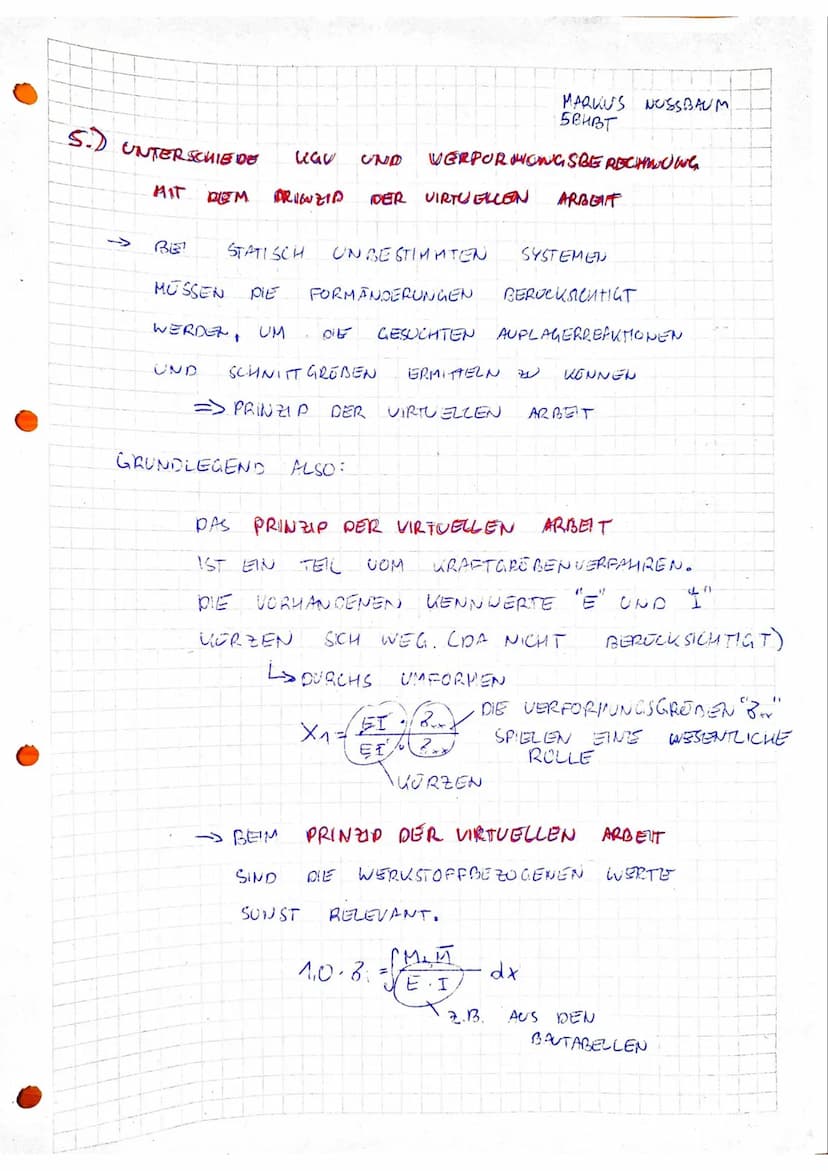 MARKUS NUSSBAUM
5BHBT
5.) UNTERSCHIEDE KGV UND VERFORMUNGSBERECHNUNG
MIT DEM PRINZIP DER VIRTUELLEN ARBEIT
→ BEI STATISCH UNBESTIMMTEN SYSTEMEN
MÜSSEN DIE FORMÄNDERUNGEN BERÜCKSICHTIGT
WERDEN, UM DIE GESUCHTEN AUFLAGERREAKTIONEN
UND SCHNITTGRÖßEN ERMITTELN ZU KÖNNEN
⇒ PRINZIP DER VIRTUELLEN ARBEIT
GRUNDLEGEND ALSO:
DAS PRINZIP DER VIRTUELLEN ARBEIT
IST EIN TEIL VOM KRAFTGRÖßENVERFAHREN.
DIE VORHANDENEN KENNWERTE "E" UND "I"
KÜRZEN SICH WEG. (DA NICHT BERÜCKSICHTIGT)
↳ DURCHS UMFORMEN
X1 = EI · / EI ·
DIE VERFORMUNGSGRÖßEN
SPIELEN EINE WESENTLICHE
ROLLE
KÜRZEN
→ BEIM PRINZIP DER VIRTUELLEN ARBEIT
SIND DIE WERKSTOFFBEZOGENEN WERTE
SONST RELEVANT.
1,0 · = ∫ M̄ / E · I dx
Z.B. AUS DEN
BAUTABELLEN